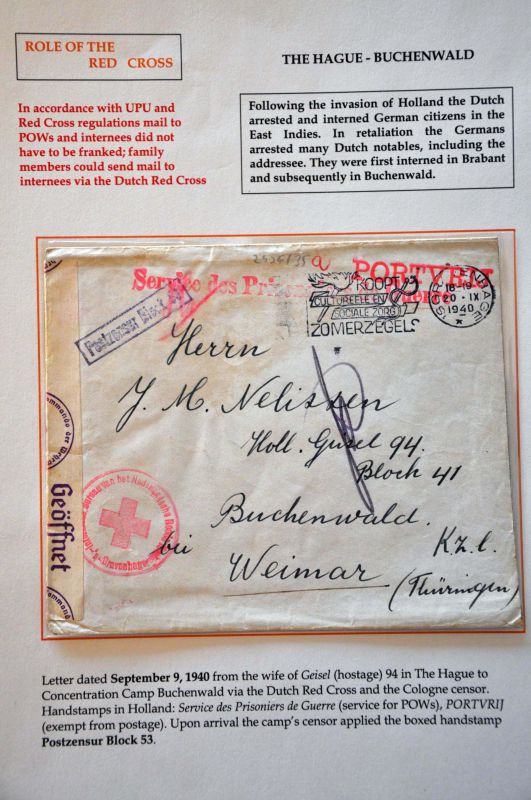 ROLE OF THE
RED CROSS
THE HAGUE - BUCHENWALD
In accordance with UPU and
Red Cross regulations mail to
POWs and internees did not
have to be franked; family
members could send mail to
internees via the Dutch Red Cross
Following the invasion of Holland the Dutch
arrested and interned German citizens in the
East Indies. In retaliation the Germans
arrested many Dutch notables, including the
addressee. They were first interned in Brabant
and subsequently in Buchenwald.
a
Service des Prisonniers de Guerre
PORTVRIJ
KOOPT
CULTUREELE EN
SOCIALE ZORG
ZOMERZEGELS
20 - IX
1940
Postzensur Block
Herrn
J. M. Nelissen
Holl. Geisel 94.
Block 41
Buchenwald.
K.z.l.
bei
Weimar
(Thüringen)
Geöffnet
Letter dated September 9, 1940 from the wife of Geisel (hostage) 94 in The Hague to
Concentration Camp Buchenwald via the Dutch Red Cross and the Cologne censor.
Handstamps in Holland: Service des Prisoniers de Guerre (service for POWs), PORTVRIJ
(exempt from postage). Upon arrival the camp's censor applied the boxed handstamp
Postzensur Block 53.